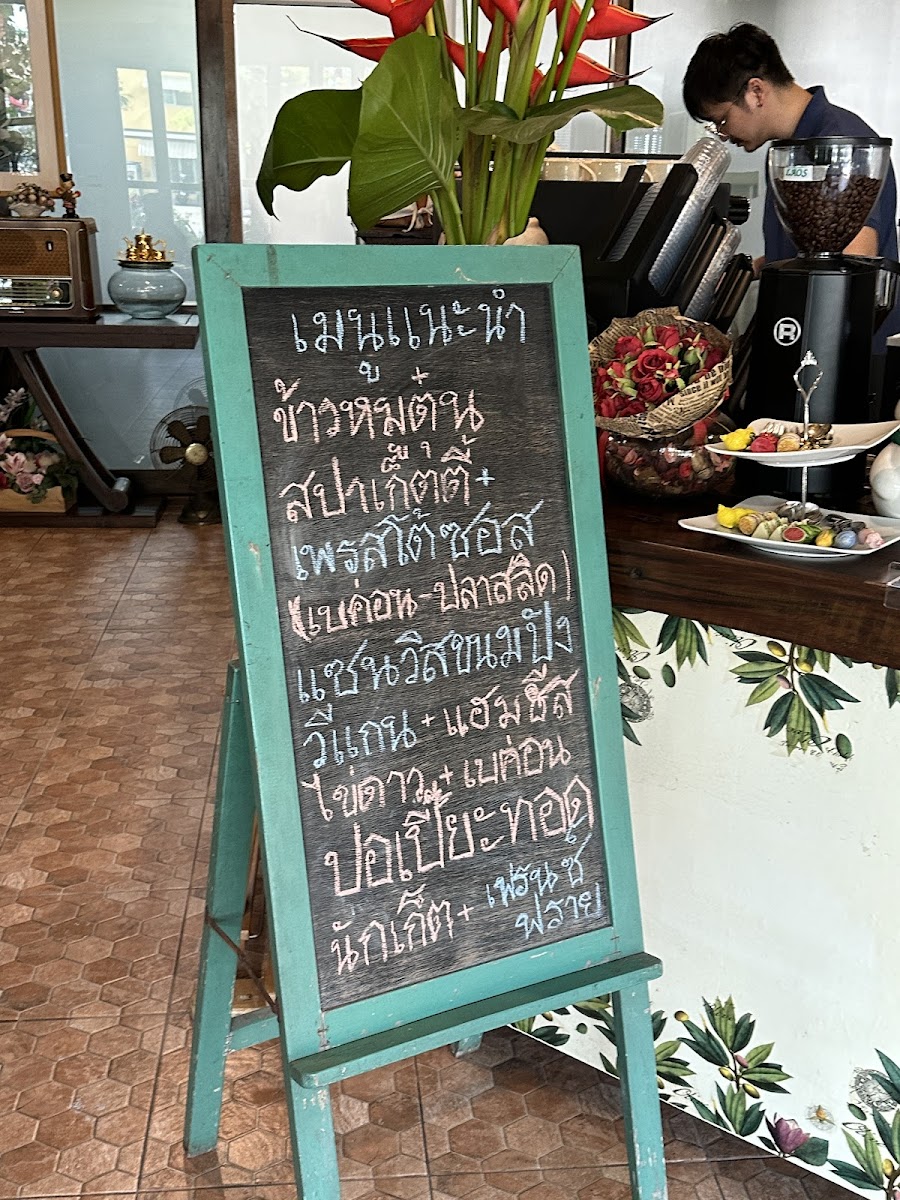 เมนูแนะนำ
ข้าวหมูตุ๋น
สปาเก็ตตี้+
เพรสโต้ซอส
(เบค่อน-ปลาสลิด)
แซนวิสขนมปัง
วีแกน+แฮมชีส
ไข่ดาว+เบค่อน
ปอเปี๊ยะทอด
นักเก็ต+เฟรนช์
ฟราย
LAOS
R